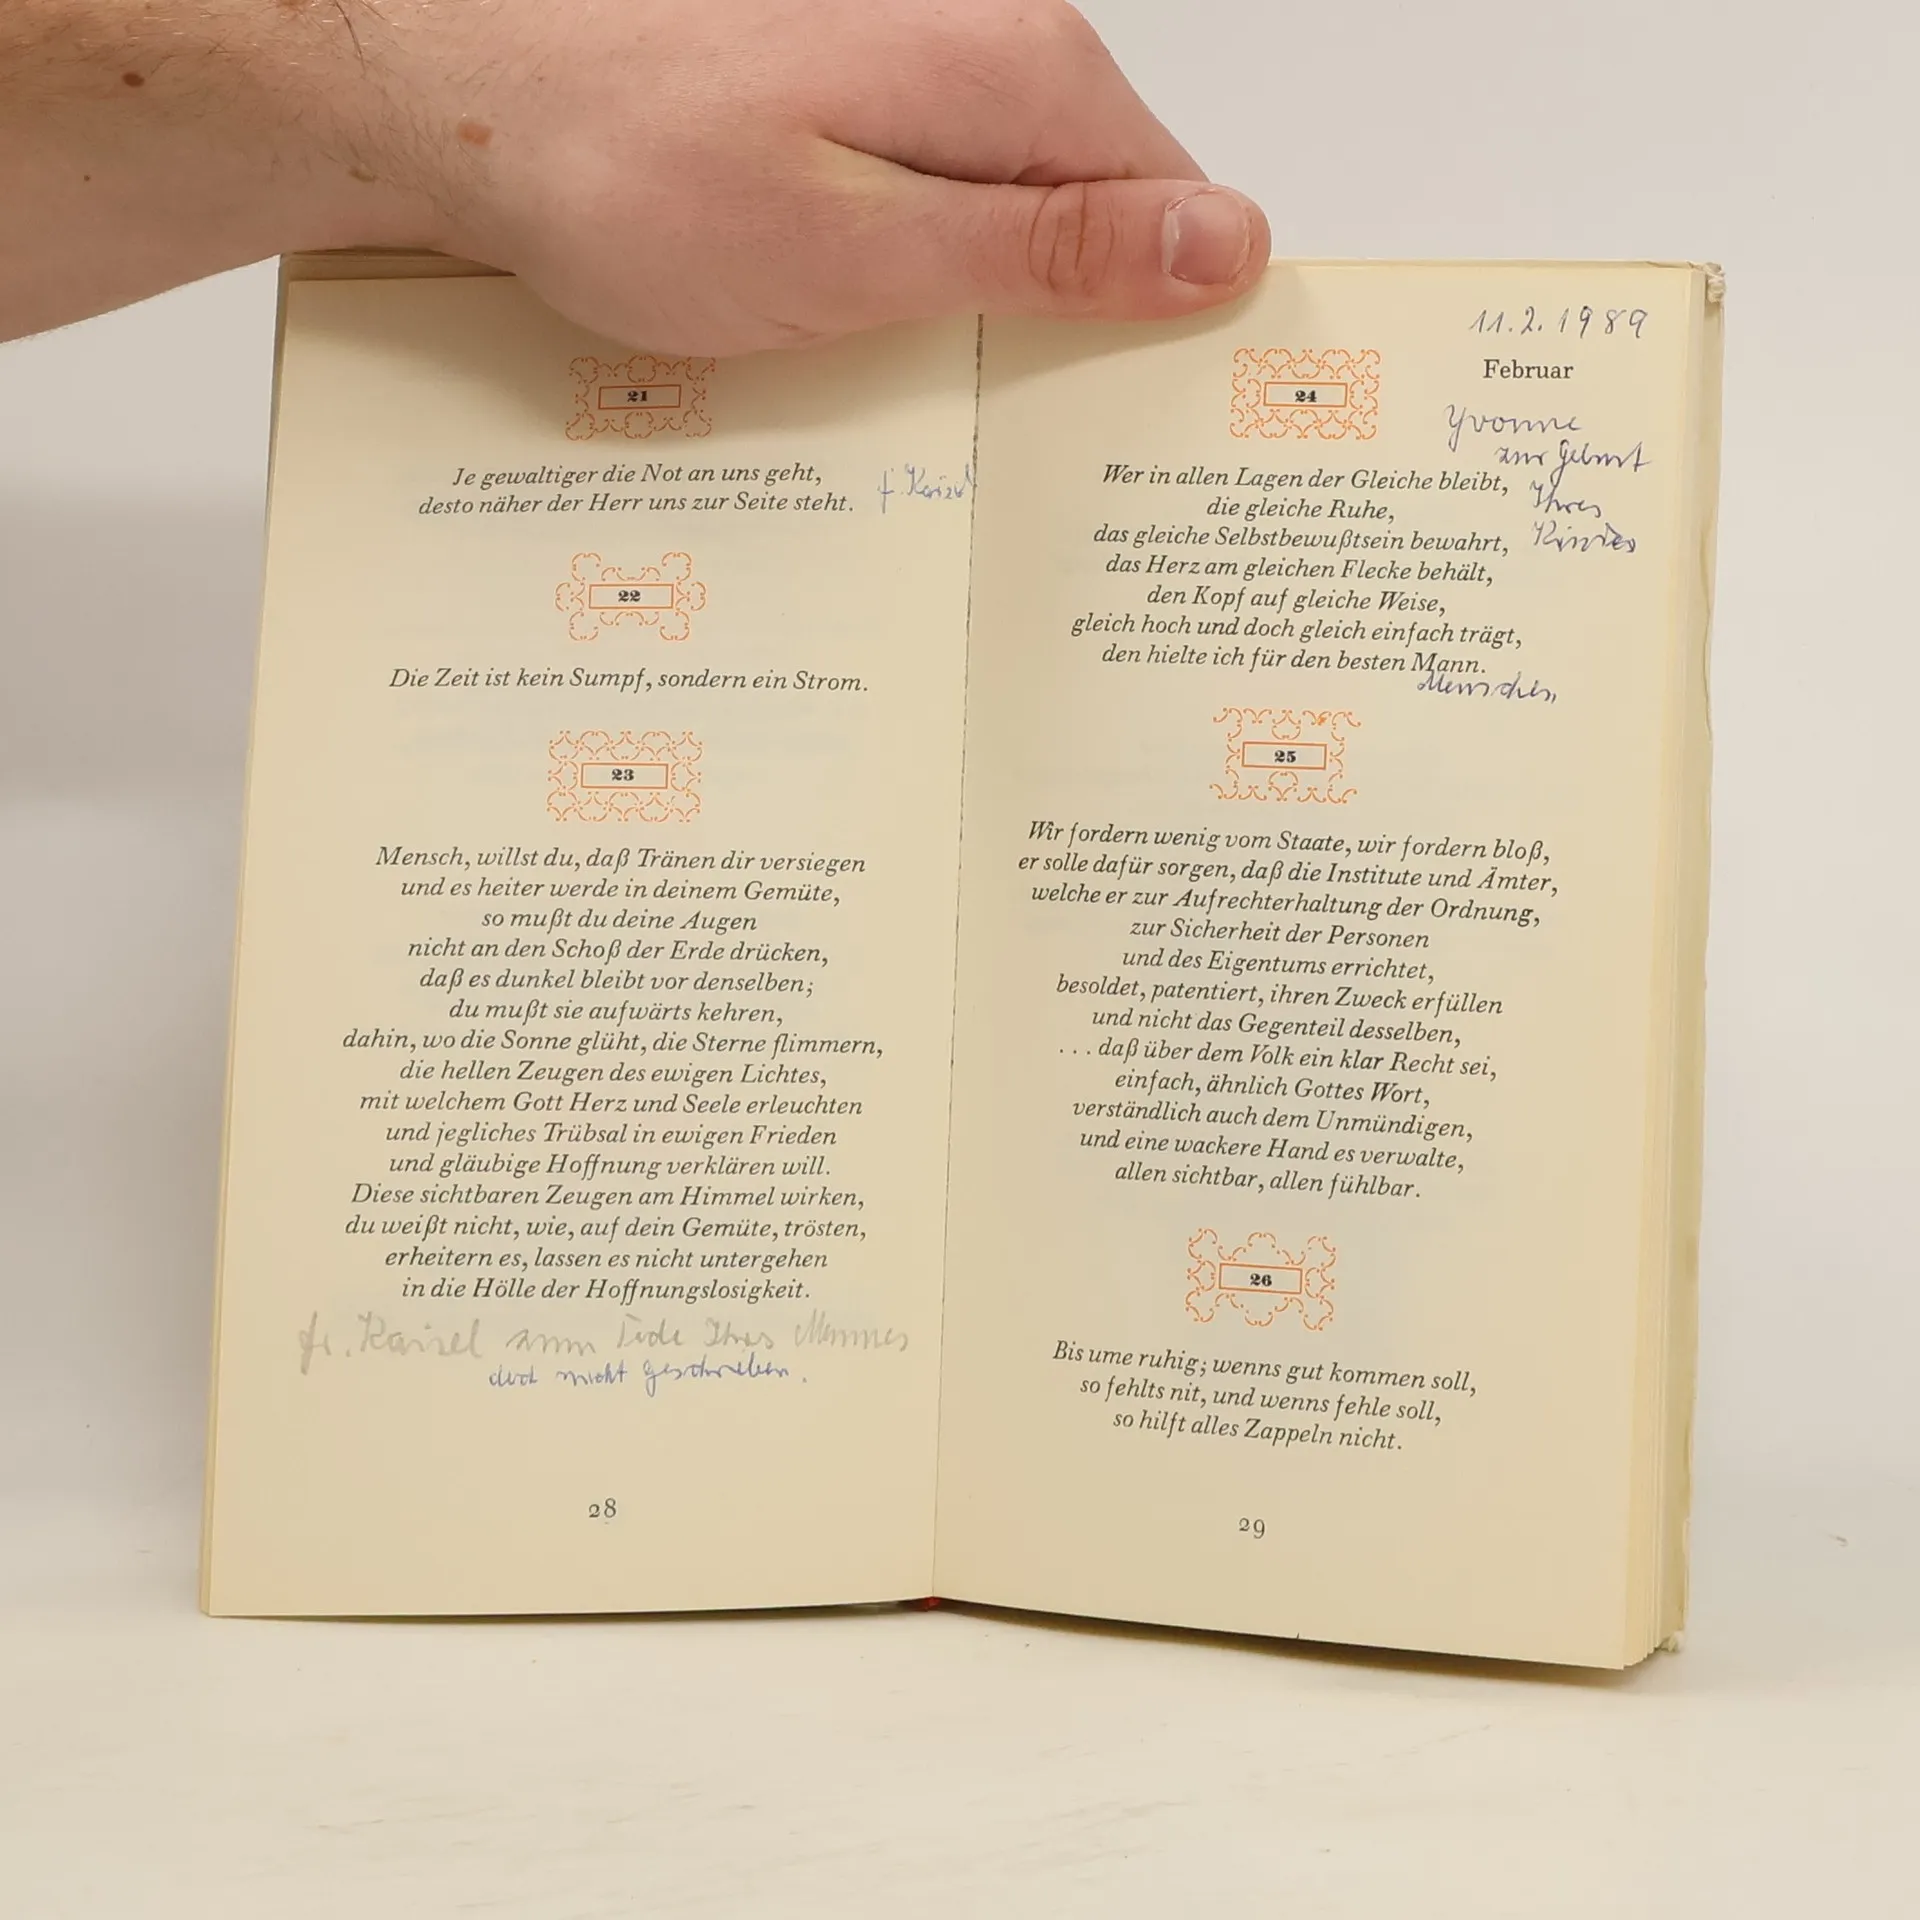 21
Je gewaltiger die Not an uns geht,
desto näher der Herr uns zur Seite steht.
22
Die Zeit ist kein Sumpf, sondern ein Strom.
23
Mensch, willst du, daß Tränen dir versiegen
und es heiter werde in deinem Gemüte,
so mußt du deine Augen
nicht an den Schoß der Erde drücken,
daß es dunkel bleibt vor denselben;
du mußt sie aufwärts kehren,
dahin, wo die Sonne glüht, die Sterne flimmern,
die hellen Zeugen des ewigen Lichtes,
mit welchem Gott Herz und Seele erleuchten
und jegliches Trübsal in ewigen Frieden
und gläubige Hoffnung verklären will.
Diese sichtbaren Zeugen am Himmel wirken,
du weißt nicht, wie, auf dein Gemüte, trösten,
erheitern es, lassen es nicht untergehen
in die Hölle der Hoffnungslosigkeit.
zum Tode Ihres Mannes
doch nicht geschrieben.
28
11.2.1989
Februar
24
Yvonne
zur Geburt
Ihres
Kindes
Wer in allen Lagen der Gleiche bleibt,
die gleiche Ruhe,
das gleiche Selbstbewußtsein bewahrt,
das Herz am gleichen Flecke behält,
den Kopf auf gleiche Weise,
gleich hoch und doch gleich einfach trägt,
den hielte ich für den besten Mann.
Menschen
25
Wir fordern wenig vom Staate, wir fordern bloß,
er solle dafür sorgen, daß die Institute und Ämter,
welche er zur Aufrechterhaltung der Ordnung,
zur Sicherheit der Personen
und des Eigentums errichtet,
besoldet, patentiert, ihren Zweck erfüllen
und nicht das Gegenteil desselben,
. . . daß über dem Volk ein klar Recht sei,
einfach, ähnlich Gottes Wort,
verständlich auch dem Unmündigen,
und eine wackere Hand es verwalte,
allen sichtbar, allen fühlbar.
26
Bis ume ruhig; wenns gut kommen soll,
so fehlts nit, und wenns fehle soll,
so hilft alles Zappeln nicht.
29